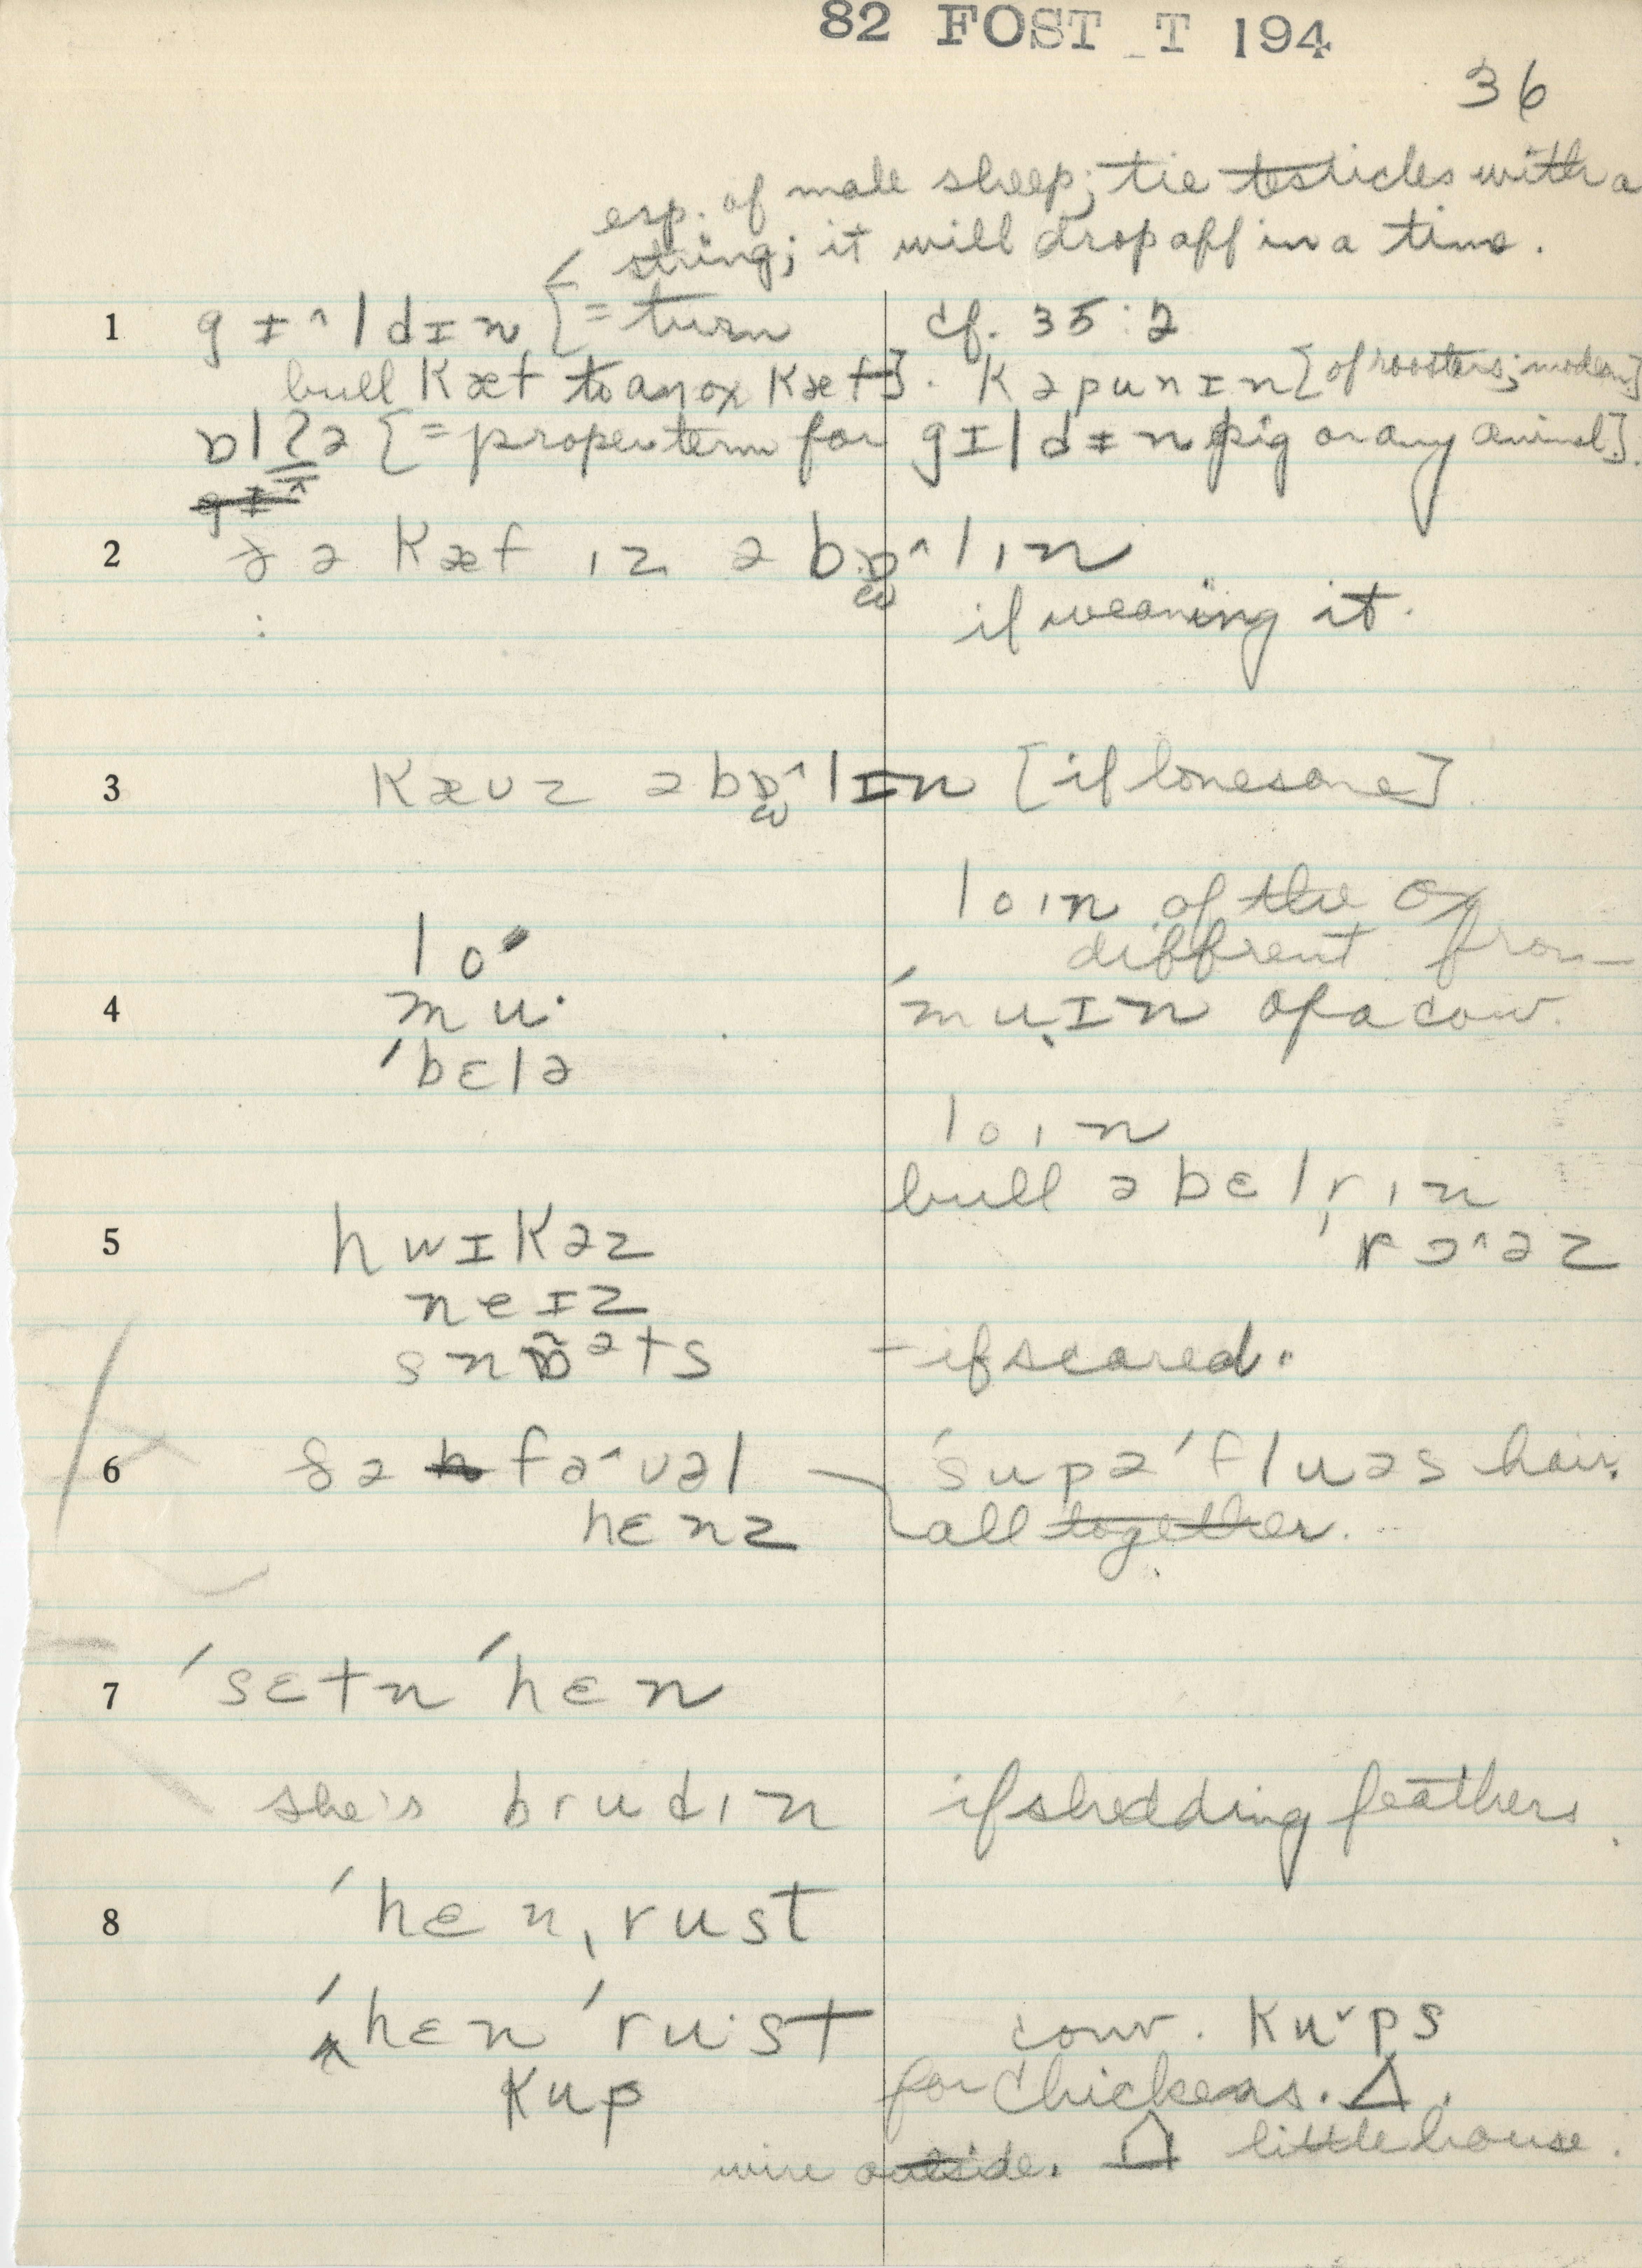 82 FOST T 194
36
esp. of male sheep; tie testicles with a
string; it will drop off in a time.
1 gɪ^ldɪn [= turn cf. 35:2
bull kæf to an ox kæf]. kəpunɪn [of roosters; modern]
[= proper term for gɪldɪn pig or any animal].
2 ðə kæf ız ə
if weaning it.
3 kævz [if lonesome]
loın of the ox
lo· different from
4 mu· ˈmuɪn of a cow.
ˈbɛlə
loın
bull ə bɛlrın
5 hwɪkəz
neɪz
– if scared.
6 ðə fə^vəl ˈsupəˈfluəs hair.
hɛnz all together.
7 ˈsɛtn ˈhɛn
she's brudın if shedding feathers.
8 ˈhɛnˌrust
ˈhɛn ˈru·st conv. kuˇps
kup for chickens. Δ.
wire outside. little house.